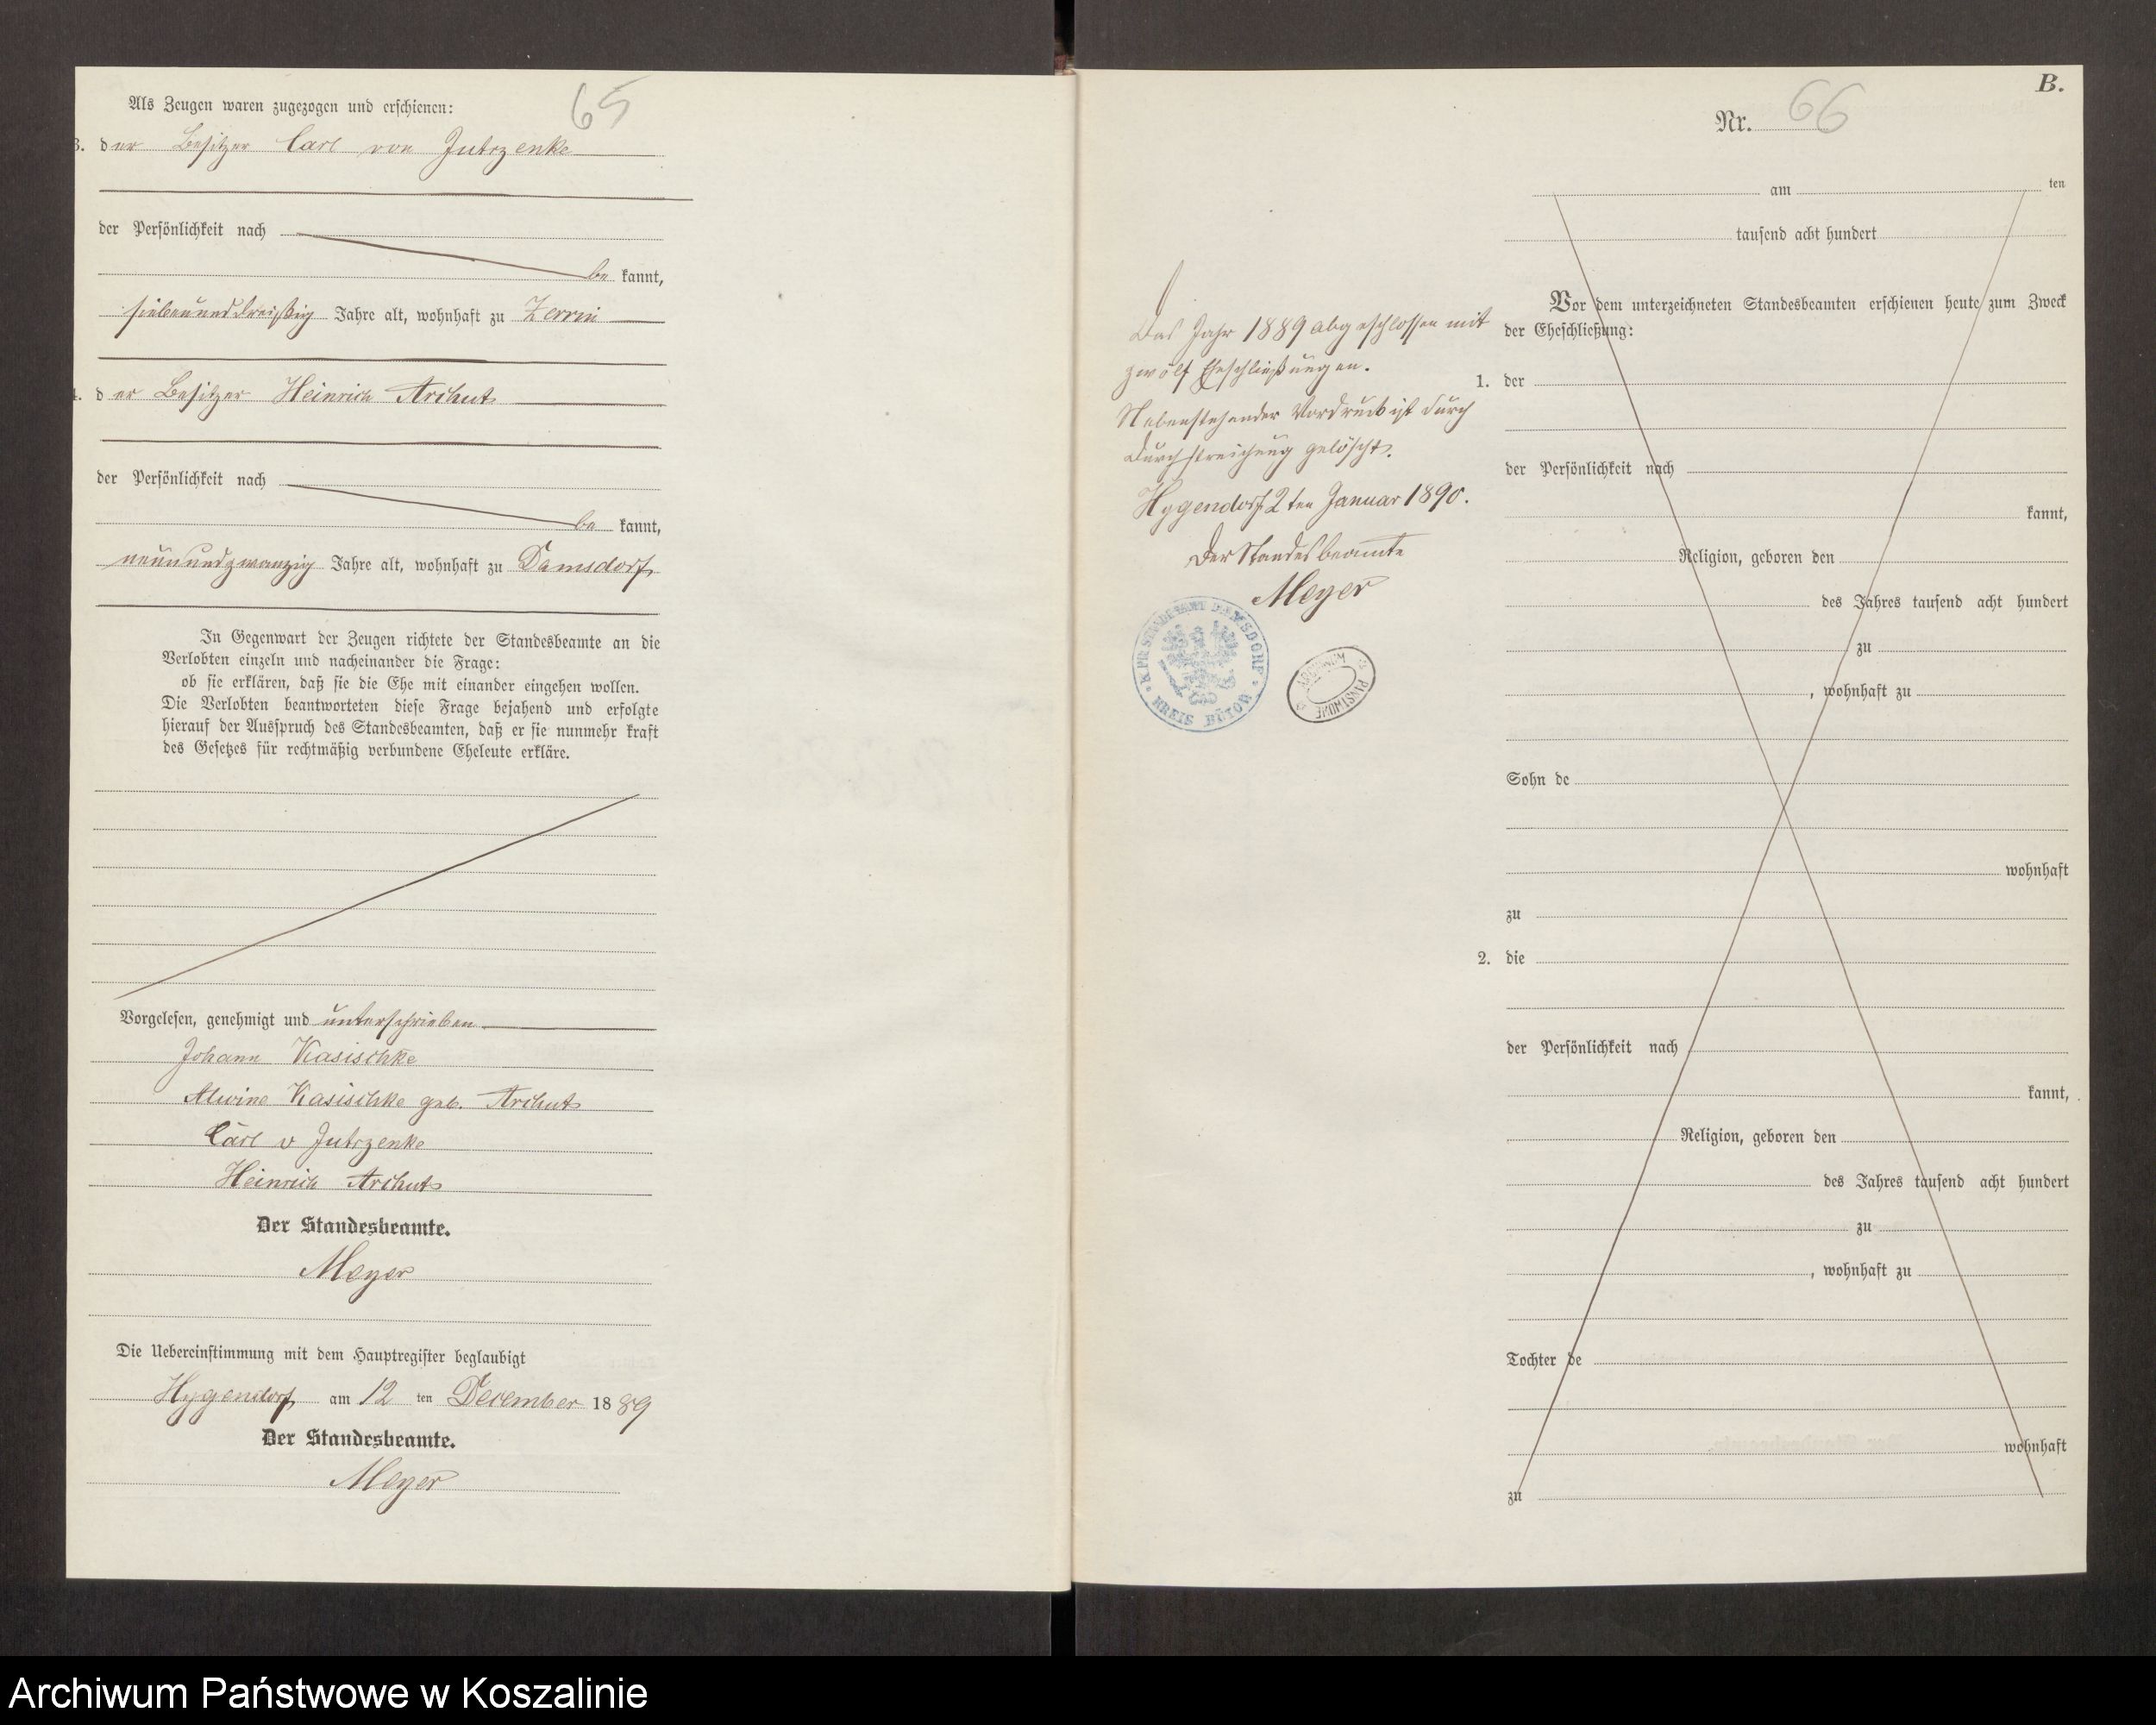 65
Als Zeugen waren zugezogen und erschienen:
3. der Besitzer Carl von Jutrzenke
der Persönlichkeit nach
be kannt,
siebenunddreißig Jahre alt, wohnhaft zu Zerrin
4. der Besitzer Heinrich Archut
der Persönlichkeit nach
be kannt,
neunundzwanzig Jahre alt, wohnhaft zu Damsdorf
In Gegenwart der Zeugen richtete der Standesbeamte an die
Verlobten einzeln und nacheinander die Frage:
ob sie erklären, daß sie die Ehe mit einander eingehen wollen.
Die Verlobten beantworteten diese Frage bejahend und erfolgte
hierauf der Ausspruch des Standesbeamten, daß er sie nunmehr kraft
des Gesetzes für rechtmäßig verbundene Eheleute erkläre.
Vorgelesen, genehmigt und unterschrieben
Johann Kasischke
Alwine Kasischke geb. Archut
Carl v Jutrzenke
Heinrich Archut
Der Standesbeamte.
Meyer
Die Uebereinstimmung mit dem Hauptregister beglaubigt
Hygendorf am 12 ten December 1889
Der Standesbeamte.
Meyer
B.
Nr. 66
am ten
tausend acht hundert
Vor dem unterzeichneten Standesbeamten erschienen heute zum Zweck
der Eheschließung:
1. der
der Persönlichkeit nach
kannt,
Religion, geboren den
des Jahres tausend acht hundert
zu
, wohnhaft zu
Sohn de
wohnhaft
zu
2. die
der Persönlichkeit nach
kannt,
Religion, geboren den
des Jahres tausend acht hundert
zu
, wohnhaft zu
Tochter de
wohnhaft
zu
Das Jahr 1889 abgeschlossen mit
zwölf Eheschließungen.
Nebenstehender Vordruck ist durch
Durchstreichung gelöscht.
Hygendorf 2ten Januar 1890.
Der Standesbeamte
Meyer
K. PR. STANDESAMT DAMSDORF
KREIS BÜTOW
ARCHIWUM
PAŃSTWOWE
Archiwum Państwowe w Koszalinie